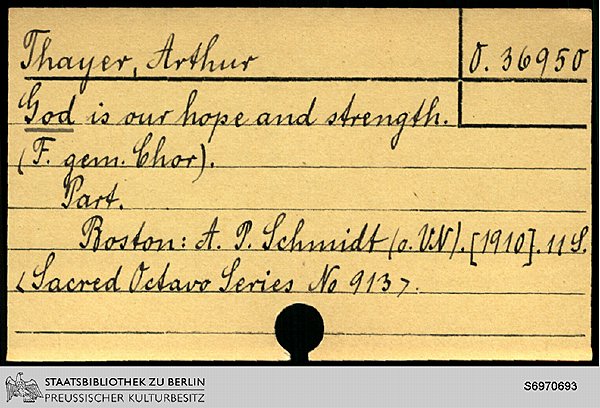 Thayer, Arthur
O. 36950
God is our hope and strength.
(F. gem. Chor).
Part.
Boston: A. P. Schmidt (o. VN). [1910]. 11 S.
<Sacred Octavo Series No 913>.
STAATSBIBLIOTHEK ZU BERLIN
PREUSSISCHER KULTURBESITZ
S6970693